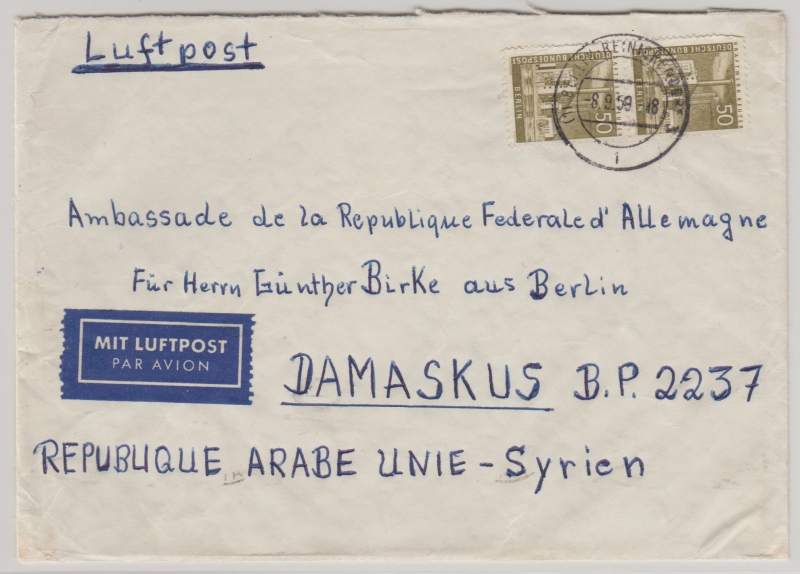 Luftpost
DEUTSCHE BUNDESPOST
BERLIN
50
DEUTSCHE BUNDESPOST
BERLIN
50
-8.9.59
18
Ambassade de la Republique Federale d' Allemagne
Für Herrn Günther Birke aus Berlin
MIT LUFTPOST
PAR AVION
DAMASKUS B.P. 2237
REPUBLIQUE ARABE UNIE - Syrien